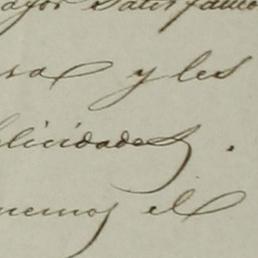 ayor satisfacc
sa y les
licidades.
nemos el